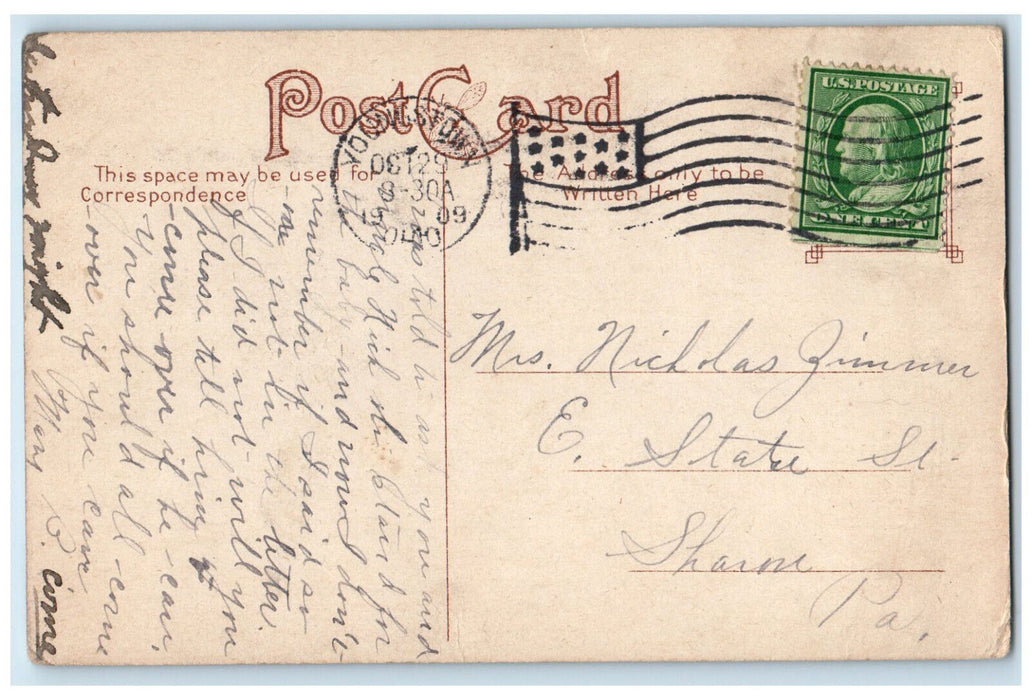 Post Card
This space may be used for
Correspondence
The Address only to be
Written Here
YOUNGSTOWN
OCT 29
8-30A
1909
OHIO
U.S. POSTAGE
ONE CENT
Mrs. Nicholas Zimmer
E. State St.
Sharon
Pa.
I was told to ask you and
Uncle Nick to stand for
the baby and now I don't
remember if I said so
or not in the letter.
If I did not will you
please tell him to
-come over if he can.
You should all come
over if you care
Mary R.
night
come